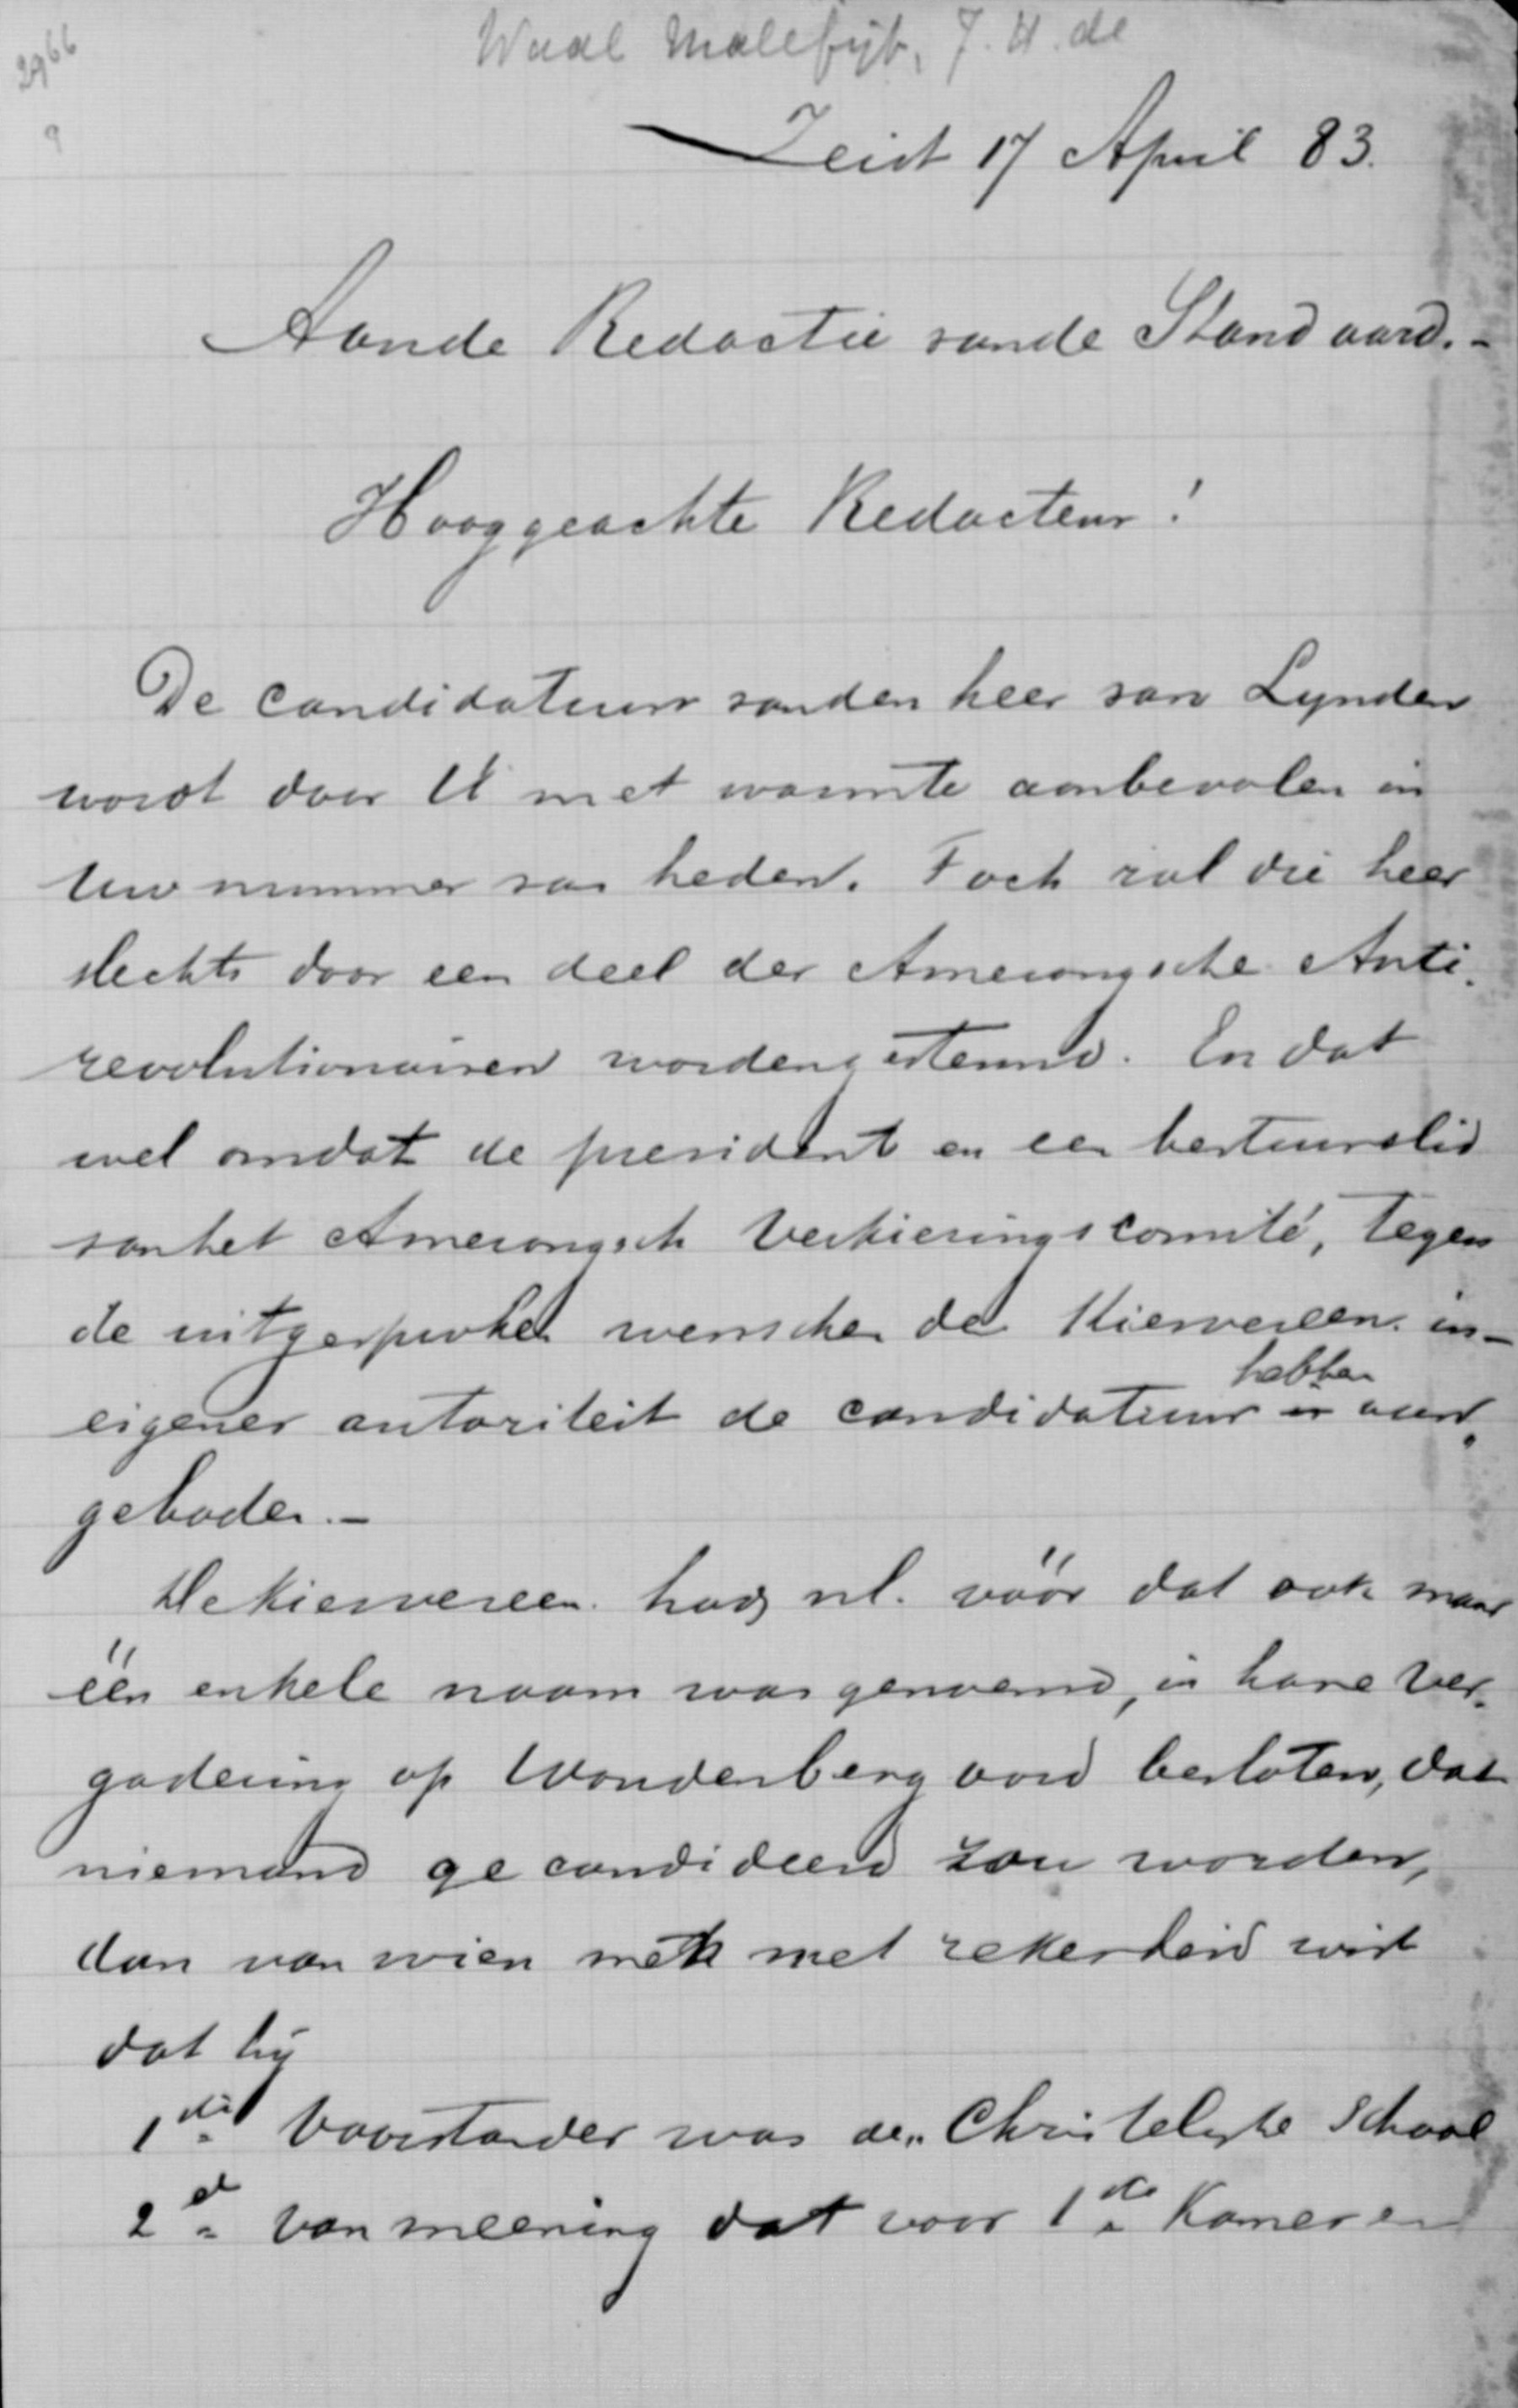 2966
9
Waal Malefijt, J. H. de
Zeist 17 April 83.
Aan de Redactie van de Standaard.-
Hooggeachte Redacteur!
De candidatuur van den heer van Lynden
wordt door U met warmte aanbevolen in
Uw nummer van heden. Toch zal die heer
slechts door een deel der Amerongsche Anti-
revolutionairen worden gestemd. En dat
wel omdat de president en een bestuurslid
van het Amerongsch Verkiezingscomité, tegen
de uitgesproken wenschen der Kiesvereen. in-
eigener autoriteit de candidatuur hebben aan-
geboden.-
De Kiesvereen. had nl. vóór dat ook maar
één enkele naam was genoemd, in hare Ver-
gadering op Woudenberg aovd besloten, dat
niemand gecandideerd zou worden,
dan van wien men met zekerheid wist
dat hij
1de Voorstander was der Christelijke School
2e van meening dat voor 1de Kamer en